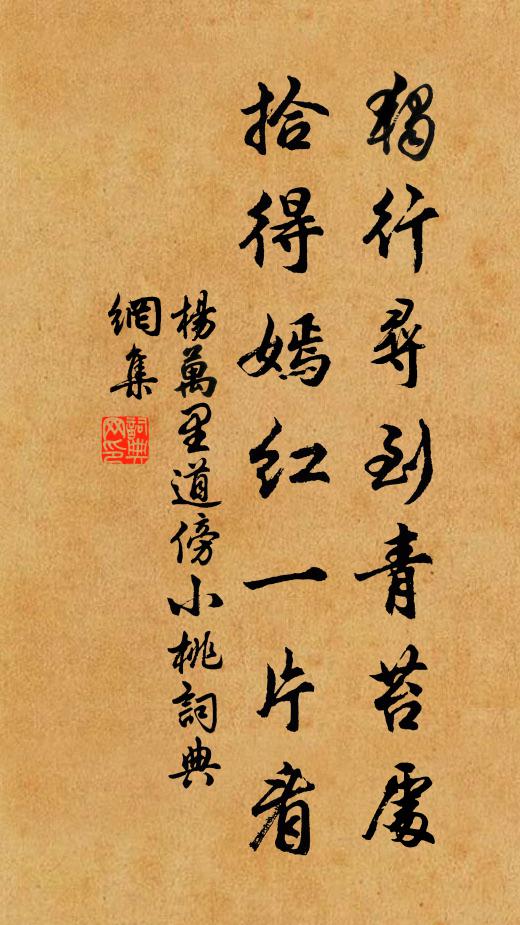 獨行尋到青苔處
拾得嫣红一片看
楊萬里道傍小桃詞典
網集
詞典
网印